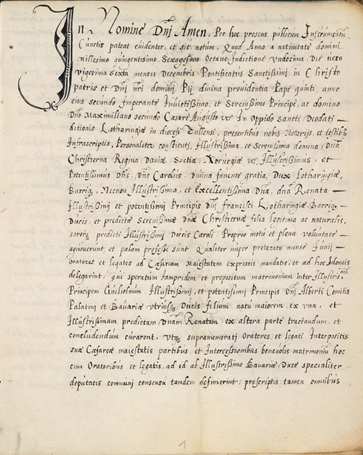 In Nomine Dnj Amen. Per hoc presens publicum Instrumentum
Cunctis pateat evidenter, et sit notum, Quod Anno a nativitate domini
millesimo quingentesimo Sexagesimo Octavo, Indictione Undecima Die vero
vigesima Sexta mensis Decembris Pontificatus Sanctissimi in Christo
patris et Dnj nri domini Pij divina providentia Pape quinti, anno
secundo Imperante Invictissimo, et Serenissimo Principe, ac domino
Dno Maximiliano secundo Cæsare Augusto &c In Oppido Sancti Deodati
ditionis Lotharingiæ in diocesi Tullensi, presentibus nobis Notarijs et testibus
Infrascriptis, Personaliter constituti, Illustrissima, et Serenissima domina, Dna
Christierna Regina Daniæ, Suetiæ, Norvegiæ &c Illustrissimus, et
Potentissimus Dns, Dns Carolus, divina favente gratia, Dux Lotharingiæ,
Barriq, Necnon Illustrissima, et Excellentissima Dna, dna Renata
Illustrissimj et potentissimi Principis Dnj Francisci Lotharingiæ, Barrique
Ducis, et predictæ Serenissimæ Dnæ Christiernæ filia legitima ac naturalis,
predicti Illustrissimi Ducis Caroli Proprio motu et plena voluntate
et palam professi sunt Qualiter super preterito mense Junij
Oratores et legatos ad Cæsaream Maiestatem expressis mandatis, et ad hoc Idoneis
delegarint, qui speratum Jampridem et propositum matrimonium inter Illustrissimum
Principem Guilielmum Illustrissimi, et potentissimi Principis Dnj Alberti Comitis
Palatini et Bavariæ utriusque Ducis filium natu maiorem, ex una, et
Illustrissimam predictam Dnam Renatam ex altera parte tractandum, et
concludendum curarent, Utque supranominati Oratores et legati Interpositis
suæ Cæsareæ maiestatis partibus et Intercessionibus benevolis matrimonium hoc
cum Oratoribus et legatis, ad id ab Illustrissimo Bavariæ Duce specialiter
deputatis communi consensu tandem definierint, prescriptis tamen omnibus